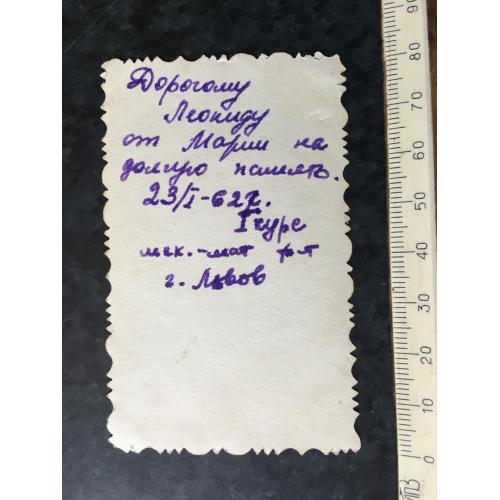 Дорогому
Леониду
от Марии на
долгую память.
23/I-62г.
I курс
мех.-мат ф-т
г. Львов
90
80
70
60
50
40
30
20
10
0